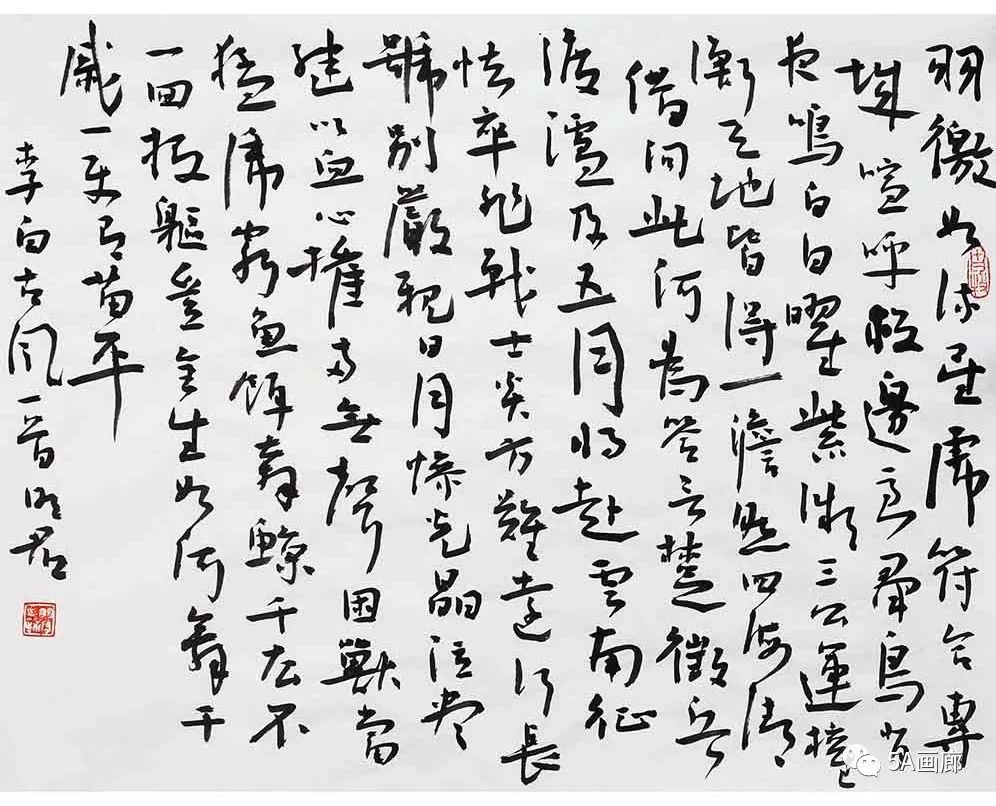 羽檄如流星虎符合專
城喧呼救邊急羣鳥皆
夜鳴白日曜紫微三公運權
衡天地皆得一澹然四海清
借問此何為答言楚徵兵
渡瀘及五月將赴雲南征
怯卒非戰士炎方難遠行長
號別嚴親日月慘光晶泣盡
繼以血心摧兩無聲困獸當
猛虎窮魚餌奔鯨千去不
一回投軀豈全生如何舞干
戚一使有苗平
李白古風一首
5A画廊